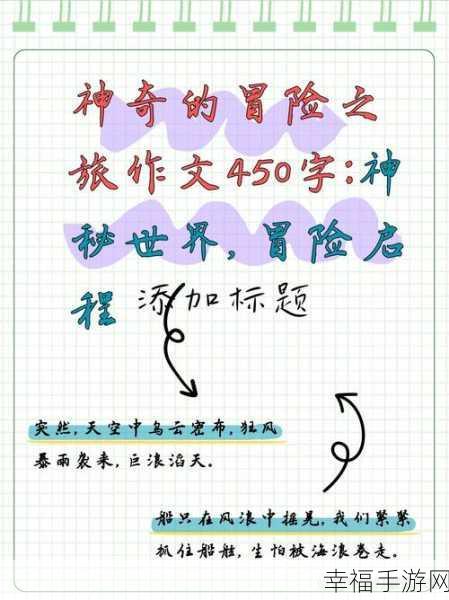 神奇的冒险之
旅作文450字:神
秘世界,冒险启
程
添加标题
突然,天空中乌云密布,狂风
暴雨袭来,巨浪滔天。
船只在风浪中摇晃,我们紧紧
抓住船舷,生怕被海浪卷走。
幸福手游网